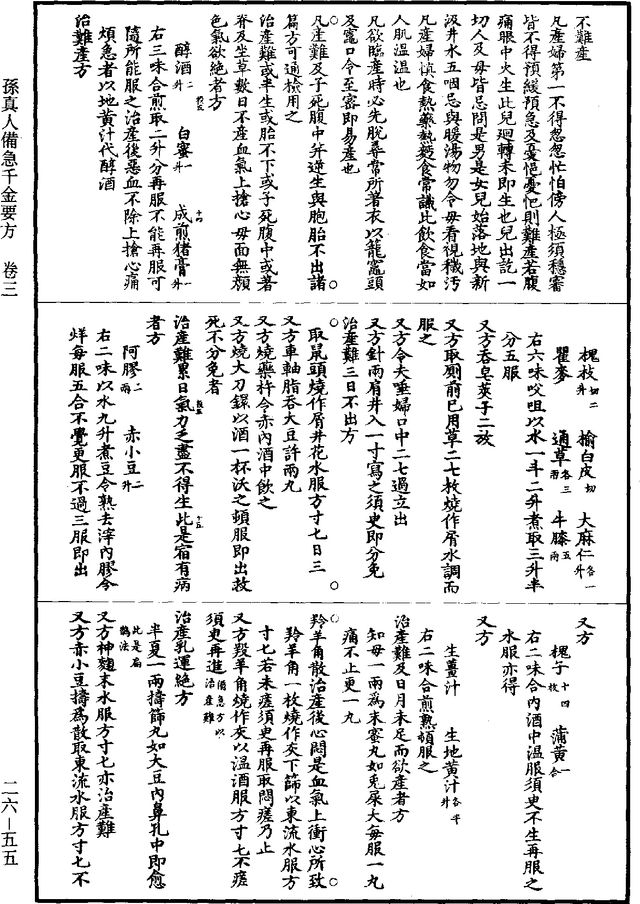 孫真人備急千金要方　卷三
不難產
凡產婦第一不得忽忽忙怕傍人極須穩審
皆不得預緩預急及憂悒憂悒則難產若腹
痛眼中火生此兒廻轉未即生也兒出訖一
切人及母皆忌問是男是女兒始落地與新
汲井水五咽忌與暖湯物勿令母看視穢污
凡產婦慎食熱藥熱麵食常識此飲食當如
人肌溫溫也
凡欲臨產時必先脫尋常所著衣以籠竈頭
及竈口令至密即易產也
凡產難及子死腹中并逆生與胞胎不出諸
篇方可通檢用之
治產難或半生或胎不下或子死腹中或著
脊及坐草數日不產血氣上搶心母面無顏
色氣欲絕者方
醇酒二升　白蜜一升　成煎猪膏一升
右三味合煎取二升分再服不能再服可
隨所能服之治產後惡血不除上搶心痛
煩急者以地黃汁代醇酒
治難產方
槐枝切二升　榆白皮切　大麻仁各一升
瞿麥　通草各三兩　牛膝五兩
右六味㕮咀以水一斗二升煮取三升半
分五服
又方吞皂莢子二枚
又方取厠前已用草二七枚燒作屑水調而
服之
又方令夫唾婦口中二七過立出
又方針兩肩井入一寸寫之須臾即分免
治產難三日不出方
取鼠頭燒作屑井花水服方寸匕日三
又方車軸脂吞大豆許兩丸
又方燒藥杵令赤內酒中飲之
又方燒大刀鐶以酒一杯沃之頓服即出故
死不分免者
治產難累日氣力乏盡不得生此是宿有病
者方
阿膠二兩　赤小豆二升
右二味以水九升煮豆令熟去滓內膠令
烊每服五合不覺更服不過三服即出
又方
槐子十四枚　蒲黃一合
右二味合內酒中溫服須臾不生再服之
水服亦得
又方
生薑汁　生地黃汁各半升
右二味合煎熟頓服之
治產難及日月未足而欲產者方
知母一兩為末蜜丸如兎屎大每服一丸
痛不止更一丸
羚羊角散治產後心悶是血氣上衝心所致
羚羊角一枚燒作灰下篩以東流水服方
寸匕若未瘥須臾再服取悶瘥乃止
又方羖羊角燒作灰以溫酒服方寸匕不瘥
須臾再進備急方以治產難
治產乳運絕方
半夏一兩擣篩丸如大豆內鼻孔中即愈
此是扁鵲法
又方神麴末水服方寸匕亦治產難
又方赤小豆擣為散取東流水服方寸匕不
二六—五五